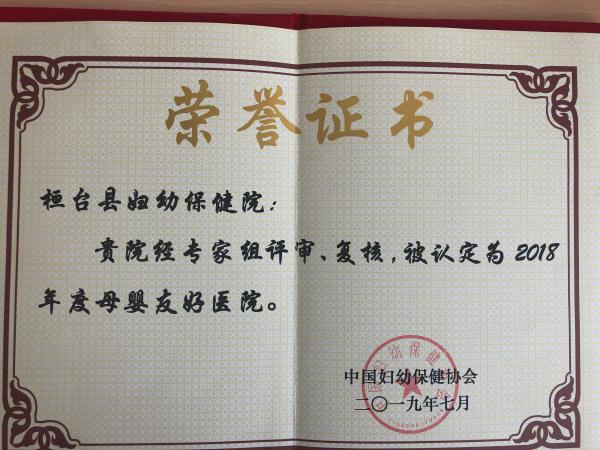 荣誉证书
桓台县妇幼保健院：
贵院经专家组评审、复核，被认定为2018
年度母婴友好医院。
中国妇幼保健协会
二〇一九年七月